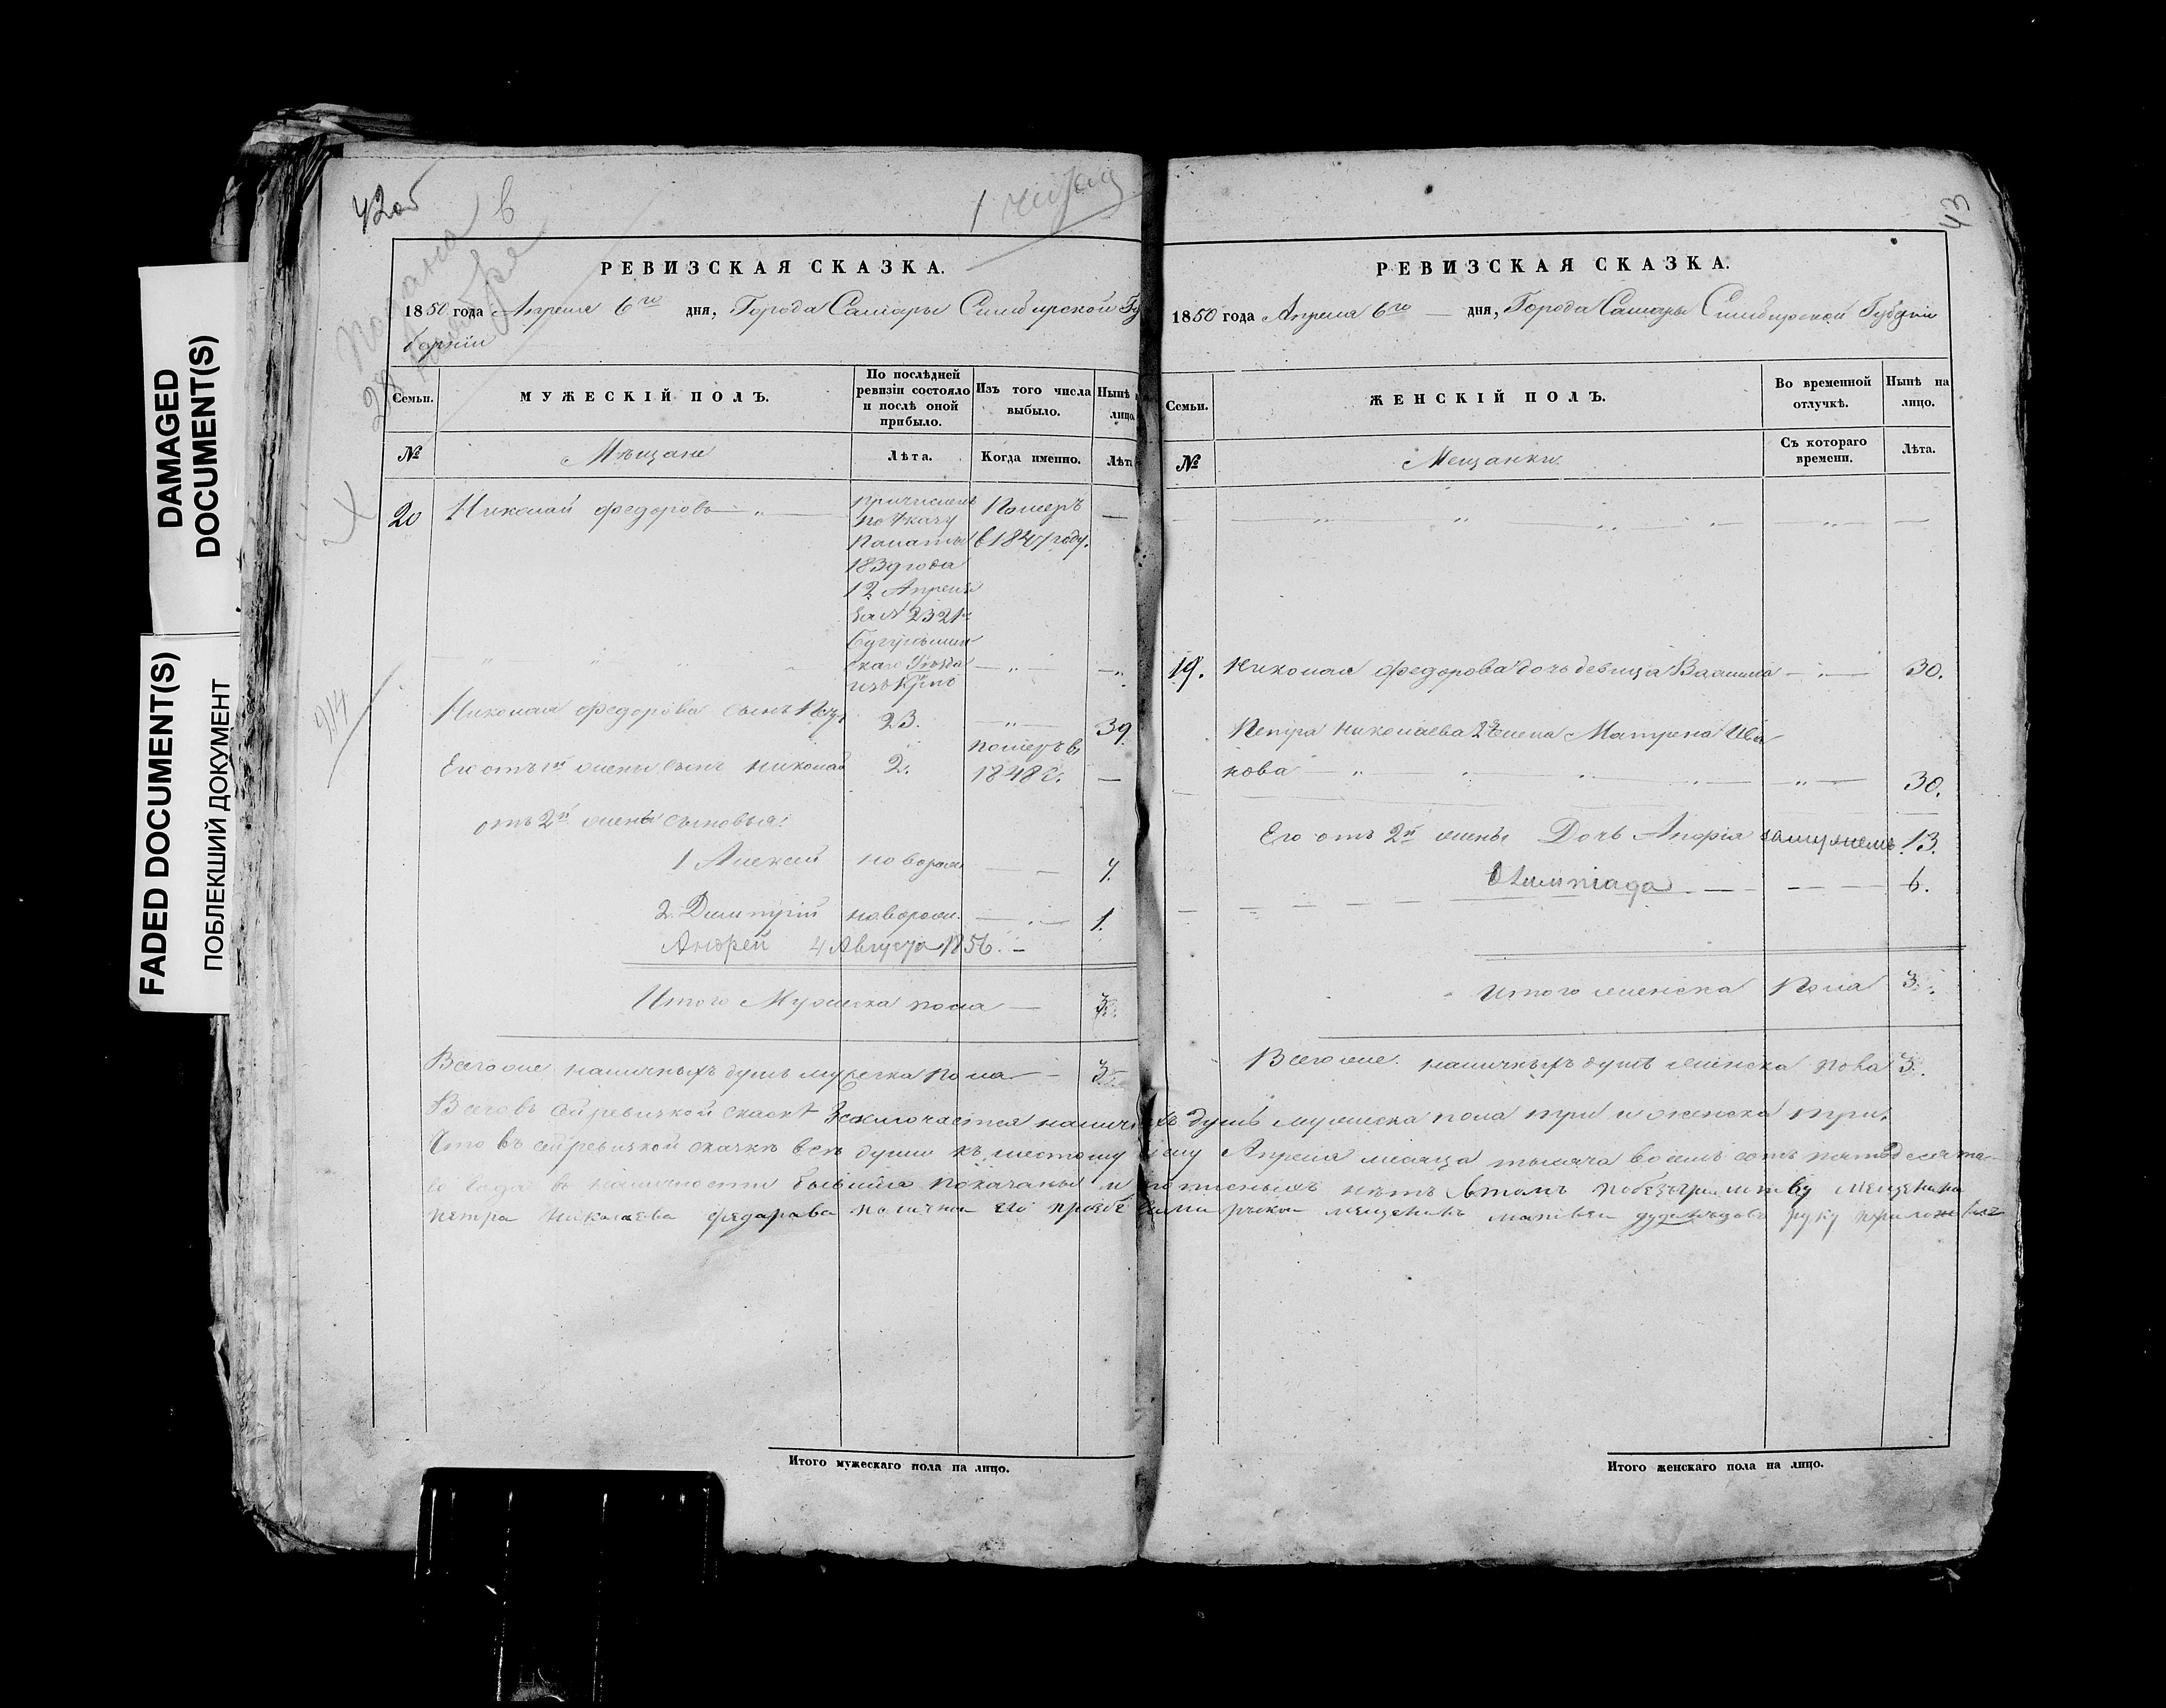 DAMAGED
DOCUMENT(S)
FADED DOCUMENT(S)
ПОБЛЕКШИЙ ДОКУМЕНТ
42об
Подана в
28
914
РЕВИЗСКАЯ СКАЗКА.
1850 года Апреля 6го дня, Города Самары Симбирской Гу
бернии
Семьи.
МУЖЕСКІЙ ПОЛЪ.
По послѣдней
ревизіи состояло
и послѣ оной
прибыло.
Изъ того числа
выбыло.
Нынѣ н
лицо.
№
Мѣщане
Лѣта.
Когда именно.
Лѣта
20
Николай Федоровъ
причисленъ
по Указу
Палаты
1839 года
12 Апреля
за № 2321
Бугульмин
скаго Уѣзда
Померъ
в 1847 году.
—
Николая Федорова сынъ Петр
23.
39
Его отъ 1й жены сынъ Николай
2.
померъ в
1848 г.
—
отъ 2й жены сыновья:
1 Алексей
новорож
7.
2. Димитрій
новорож.
1.
Андрей 4 Августа 1856.
Итого Мужеска пола
3.
Всего же наличныхъ душъ мужеска пола
3
Итого мужескаго пола на лицо.
43
РЕВИЗСКАЯ СКАЗКА.
1850 года Апреля 6го — дня, Города Самары Симбирской Губернии
Семьи.
ЖЕНСКІЙ ПОЛЪ.
Во временной
отлучкѣ.
Нынѣ на
лицо.
№
Мещанки
Съ котораго
времени.
Лѣта.
19.
Николая Федорова дочь девица
30.
Петра Николаева 2я жена Матрена Ива
нова
30.
Его отъ 2й жены Дочь
замужемъ
13.
Олимпіада
6.
Итого женска Пола
3.
Всего же наличныхъ душъ женска пола
3.
Всего въ сей ревизкой сказке заключается наличныхъ душъ мужеска пола три и женска три.
Что въ сей ревизкой сказке все души къ шестому числу Апреля месяца тысяча восемь сотъ пятидесята
го года в наличности бывшие показаны и прописныхъ нетъ втомъ мещенина
петра николаева федарава поличнай его прозбе мещенинъ матвей руку приложилъ
Итого женскаго пола на лицо.